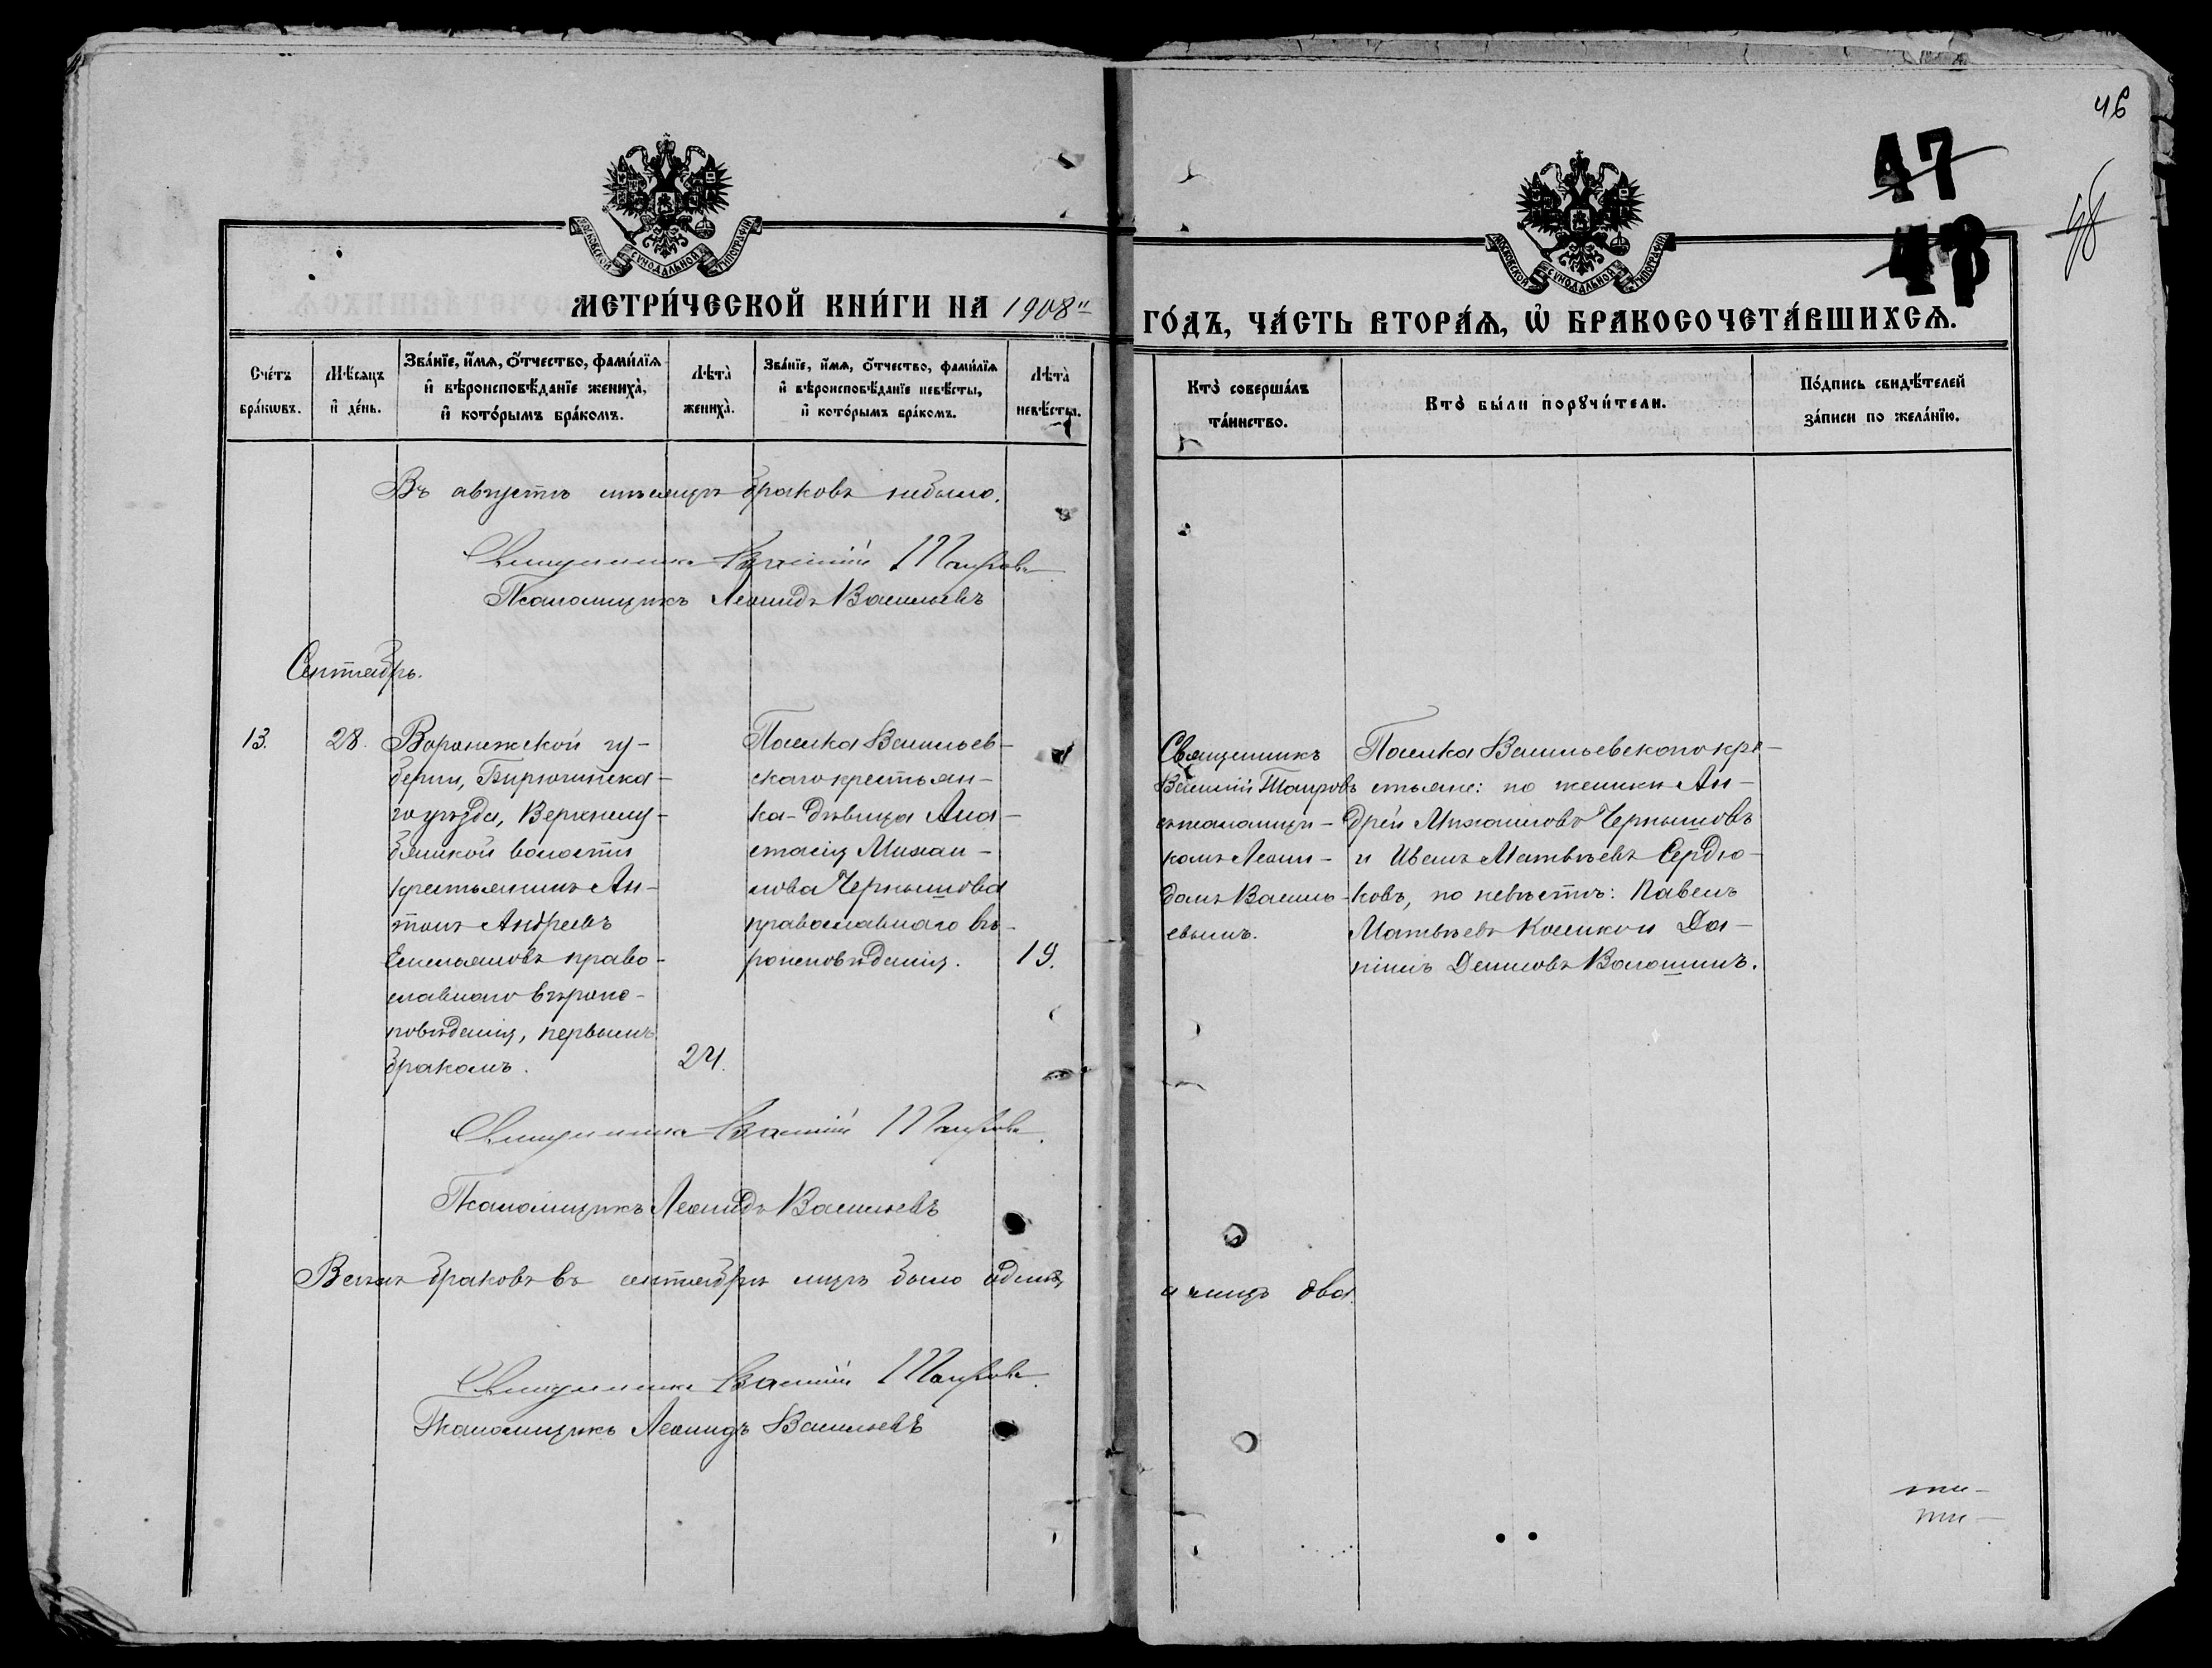 46
47
48
48
МОСКОВСКОЙ СѴНОДАЛЬНОЙ ТИПОГРАФІИ
МОСКОВСКОЙ СѴНОДАЛЬНОЙ ТИПОГРАФІИ
МЕТРИ́ЧЕСКОЙ КНИ́ГИ НА 1908й
ГО́ДЪ, ЧА́СТЬ ВТОРА́Ѧ, Ѽ БРАКОСОЧЕТА́ВШИХСѦ.
Сче́тъ
бра́кѡвъ.
Мѣ́сѧцъ
и҆ де́нь.
Зва́нїе, и҆́мѧ, ѻ҆́тчество, фами́лїѧ
и҆ вѣроисповѣ́данїе жениха̀,
и҆ кото́рымъ бра́комъ.
Лѣта̀
жениха̀.
Зва́нїе, и҆́мѧ, ѻ҆́тчество, фами́лїѧ
и҆ вѣроисповѣ́данїе невѣ́сты,
и҆ кото́рымъ бра́комъ.
Лѣта̀
невѣ́сты.
Кто̀ соверша́лъ
та́инство.
Кто̀ бы́ли порꙋчи́тели.
По́дпись свидѣ́телей
за́писи по жела́нїю.
Въ августѣ мѣсяцѣ браковъ небыло.
Священникъ Василій Таировъ
Псаломщикъ Леонидъ Васильевъ
Сентябрь.
13.
28.
Воронежской гу-
берни, Бирючинска-
го уѣзда, Верхнелу-
бянской волости
крестьянинъ Ан-
тонъ Андреевъ
Емельяновъ право-
славнаго вѣроис-
повѣданія, первымъ
бракомъ.
24.
Поселка Васильев-
скаго крестьян-
ка-дѣвица Ана-
стасія Михаи-
лова Чернышова
православнаго вѣ-
роисповѣданія.
19.
Священникъ
Василій Таировъ
съ псаломщи-
комъ Леони-
домъ Василь-
евымъ.
Поселка Васильевскаго кре-
стьяне: по жениху Ан-
дрей Михаиловъ Чернышовъ
и Иванъ Матвѣевъ Сердю-
ковъ, по невѣстѣ: Павелъ
Матвѣевъ Кошкин и Да-
ніилъ Денисовъ Волошинъ.
Священникъ Василій Таировъ
Псаломщикъ Леонидъ Васильевъ
Всѣхъ браковъ въ сентябрѣ мцѣ было одинъ,
а лицъ два.
Священникъ Василій Таировъ
Псаломщикъ Леонидъ Васильевъ